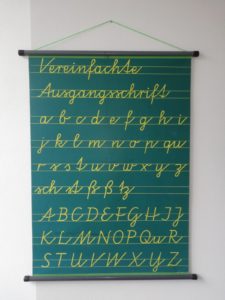 Vereinfachte
Ausgangsschrift
a b c d e f g h i
j k l m n o p qu
r s s t u v w x y z
sch st ß ß tz
A B C D E F G H I J
K L M N O P Qu R
S T U V W X Y Z